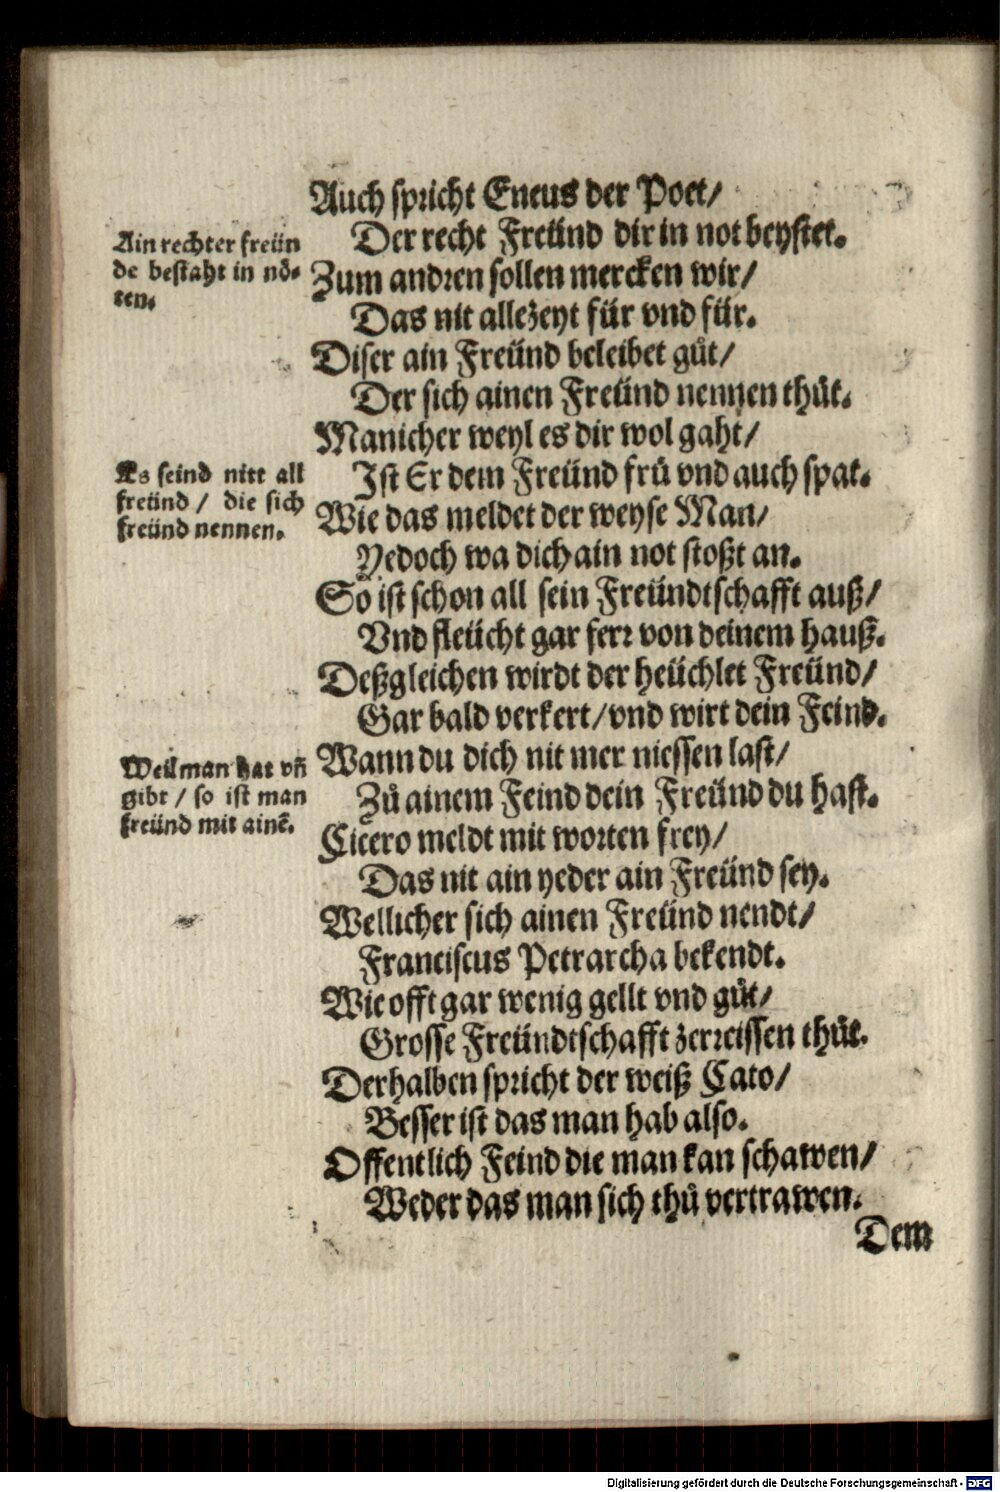 Auch spricht Eneus der Poet/
Der recht Freünd dir in not beystet.
Ain rechter freün
de bestaht in nö-
ten.
Zum andren sollen mercken wir/
Das nit allezeyt für vnd für.
Diser ain Freünd beleibet gůt/
Der sich ainen Freünd nennen thůt.
Manicher weyl es dir wol gaht/
Ist Er dem Freünd frů vnd auch spat.
Es seind nitt all
freünd / die sich
freünd nennen.
Wie das meldet der weyse Man/
Yedoch wa dich ain not stoßt an.
So ist schon all sein Freündtschafft auß/
Vnd fleücht gar ferr von deinem hauß.
Deßgleichen wirdt der heüchlet Freünd/
Gar bald verkert/vnd wirt dein Feind.
Wann du dich nit mer niessen last/
Zů ainem Feind dein Freünd du hast.
Weil man hat vñ
gibt / so ist man
freünd mit ainẽ.
Cicero meldt mit worten frey/
Das nit ain yeder ain Freünd sey.
Wellicher sich ainen Freünd nendt/
Franciscus Petrarcha bekendt.
Wie offt gar wenig gellt vnd gůt/
Grosse Freündtschafft zerreissen thůt.
Derhalben spricht der weiß Cato/
Besser ist das man hab also.
Offentlich Feind die man kan schawen/
Weder das man sich thů vertrawen.
Dem
Digitalisierung gefördert durch die Deutsche Forschungsgemeinschaft - DFG